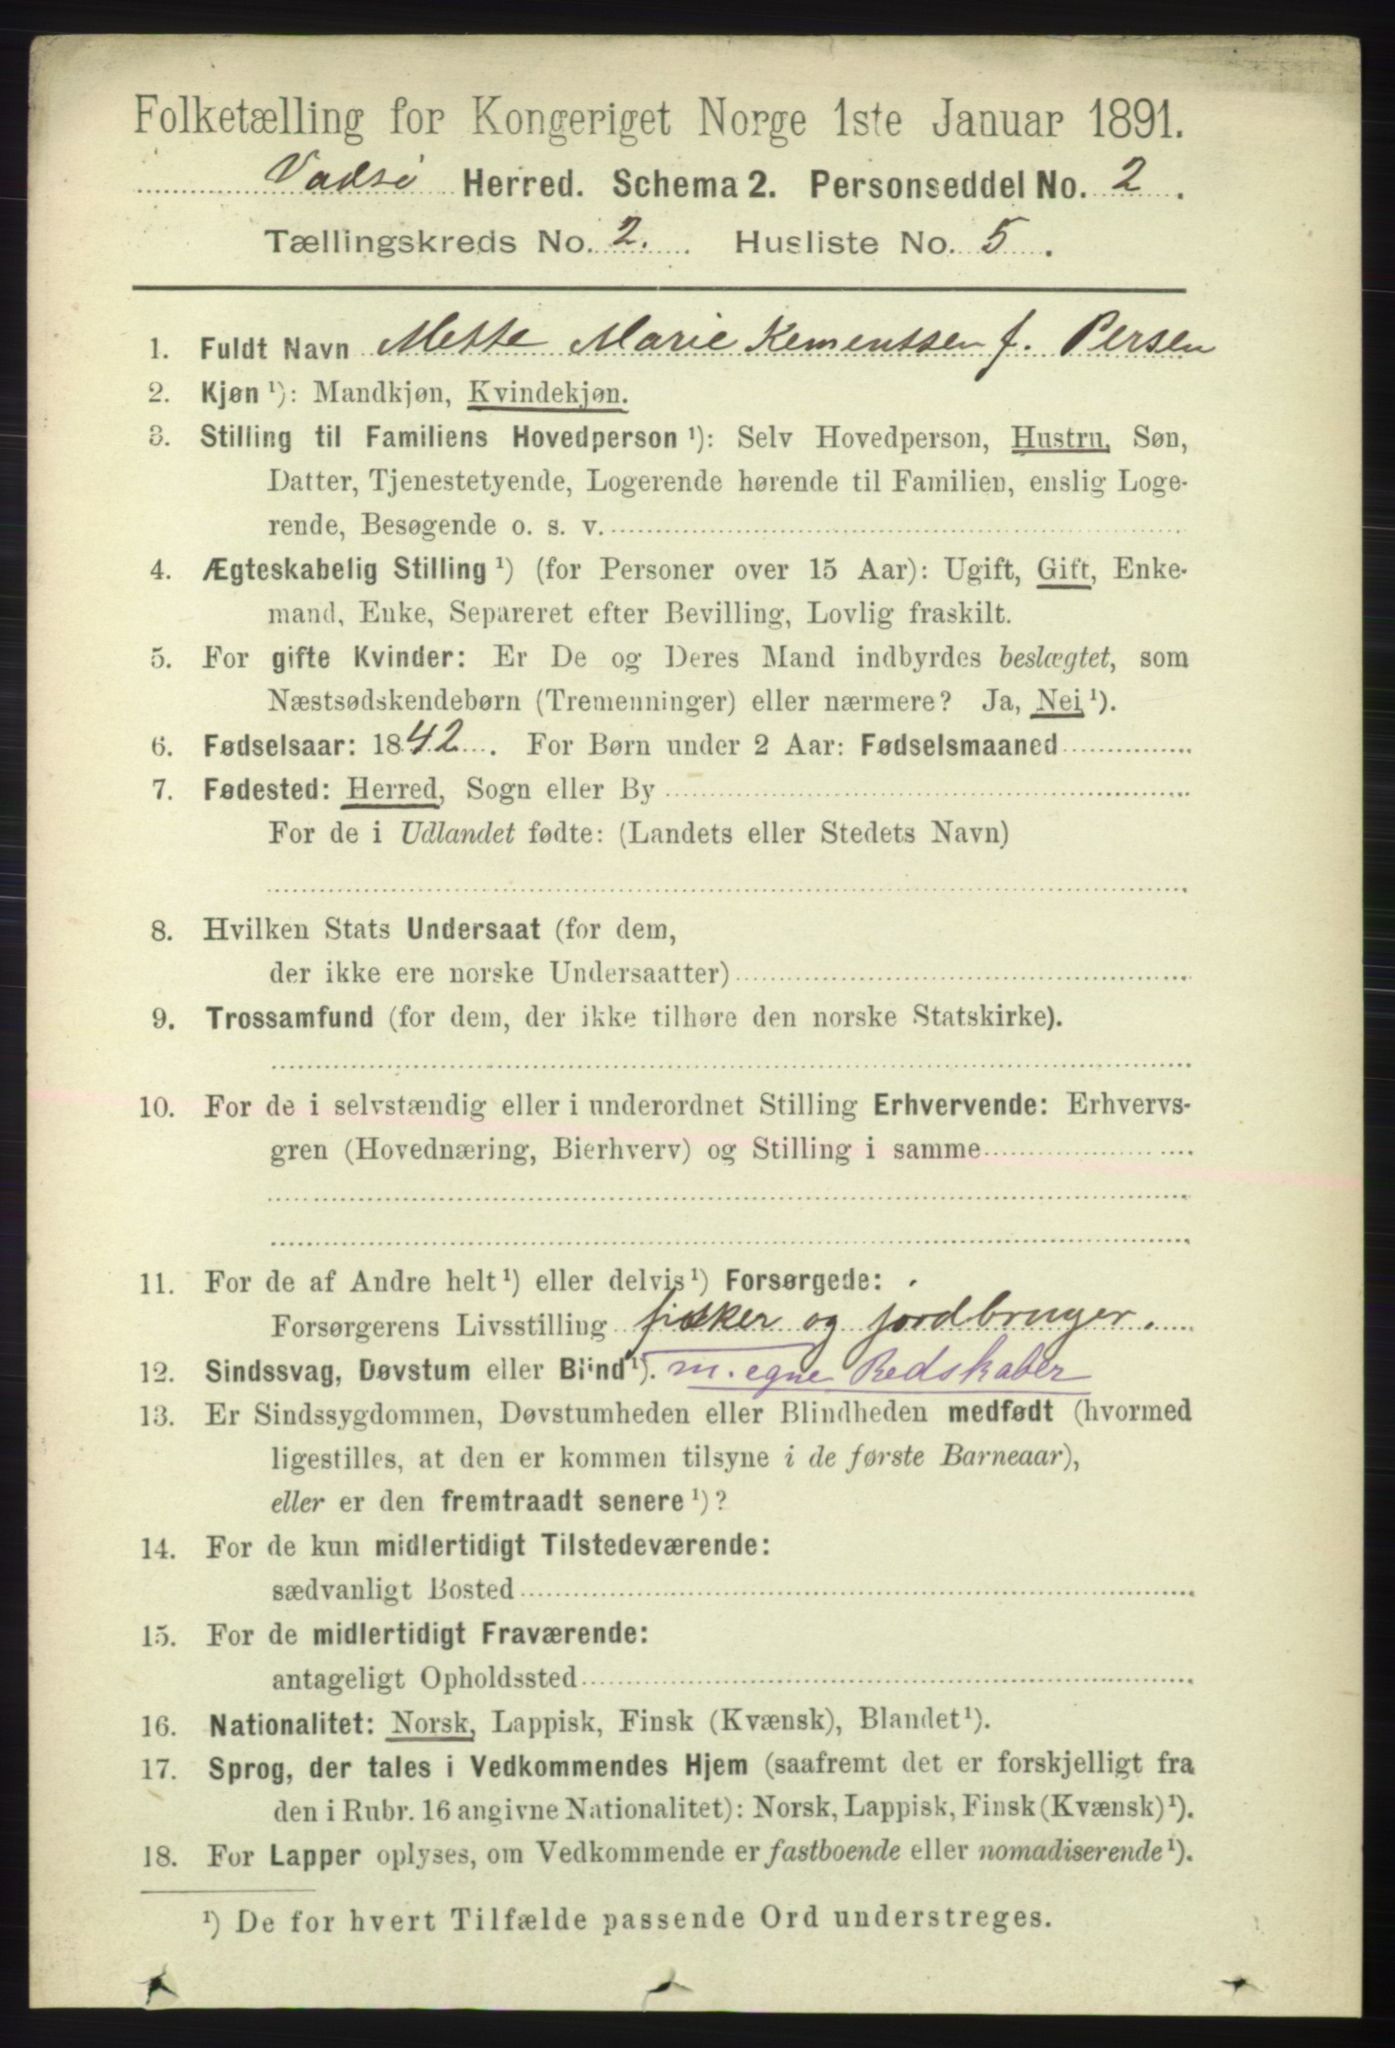 Folketælling for Kongeriget Norge 1ste Januar 1891.
Vadsø Herred. Schema 2. Personseddel No. 2.
Tællingskreds No. 2. Husliste No. 5.
1. Fuldt Navn Mette Marie Kementssen f. Persen
2. Kjøn ¹): Mandkjøn, Kvindekjøn.
3. Stilling til Familiens Hovedperson ¹): Selv Hovedperson, Hustru, Søn,
Datter, Tjenestetyende, Logerende hørende til Familien, enslig Loge-
rende, Besøgende o. s. v.
4. Ægteskabelig Stilling ¹) (for Personer over 15 Aar): Ugift, Gift, Enke-
mand, Enke, Separeret efter Bevilling, Lovlig fraskilt.
5. For gifte Kvinder: Er De og Deres Mand indbyrdes beslægtet, som
Næstsødskendebørn (Tremenninger) eller nærmere? Ja, Nei ¹).
6. Fødselsaar: 1842. For Børn under 2 Aar: Fødselsmaaned
7. Fødested: Herred, Sogn eller By
For de i Udlandet fødte: (Landets eller Stedets Navn)
8. Hvilken Stats Undersaat (for dem,
der ikke ere norske Undersaatter)
9. Trossamfund (for dem, der ikke tilhøre den norske Statskirke).
10. For de i selvstændig eller i underordnet Stilling Erhvervende: Erhvervs-
gren (Hovednæring, Bierhverv) og Stilling i samme
11. For de af Andre helt ¹) eller delvis ¹) Forsørgede:
Forsørgerens Livsstilling fisker og jordbruger.
12. Sindssvag, Døvstum eller Blind ¹). m. egne Redskaber
13. Er Sindssygdommen, Døvstumheden eller Blindheden medfødt (hvormed
ligestilles, at den er kommen tilsyne i de første Barneaar),
eller er den fremtraadt senere ¹)?
14. For de kun midlertidigt Tilstedeværende:
sædvanligt Bosted
15. For de midlertidigt Fraværende:
antageligt Opholdssted
16. Nationalitet: Norsk, Lappisk, Finsk (Kvænsk), Blandet ¹).
17. Sprog, der tales i Vedkommendes Hjem (saafremt det er forskjelligt fra
den i Rubr. 16 angivne Nationalitet): Norsk, Lappisk, Finsk (Kvænsk) ¹).
18. For Lapper oplyses, om Vedkommende er fastboende eller nomadiserende ¹).
¹) De for hvert Tilfælde passende Ord understreges.